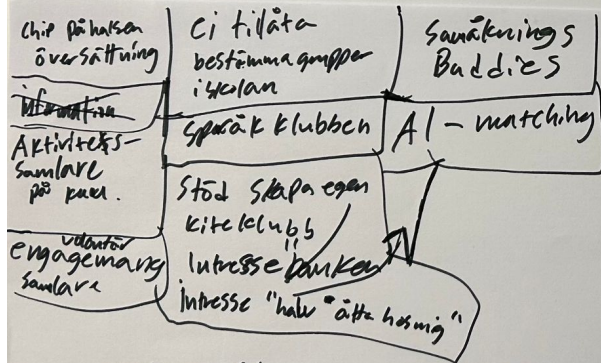 chip på halsen
översättning
Information
Aktivitets-
samlare
på kuu.
volontär
engagemang
samlare
Ei tillåta
bestämma grupper
i skolan
språk klubben
Stöd skapa egen
kiteklubb
Intressebanken
intresse "halv åtta hos mig"
Samåknings
Buddies
AI - matching